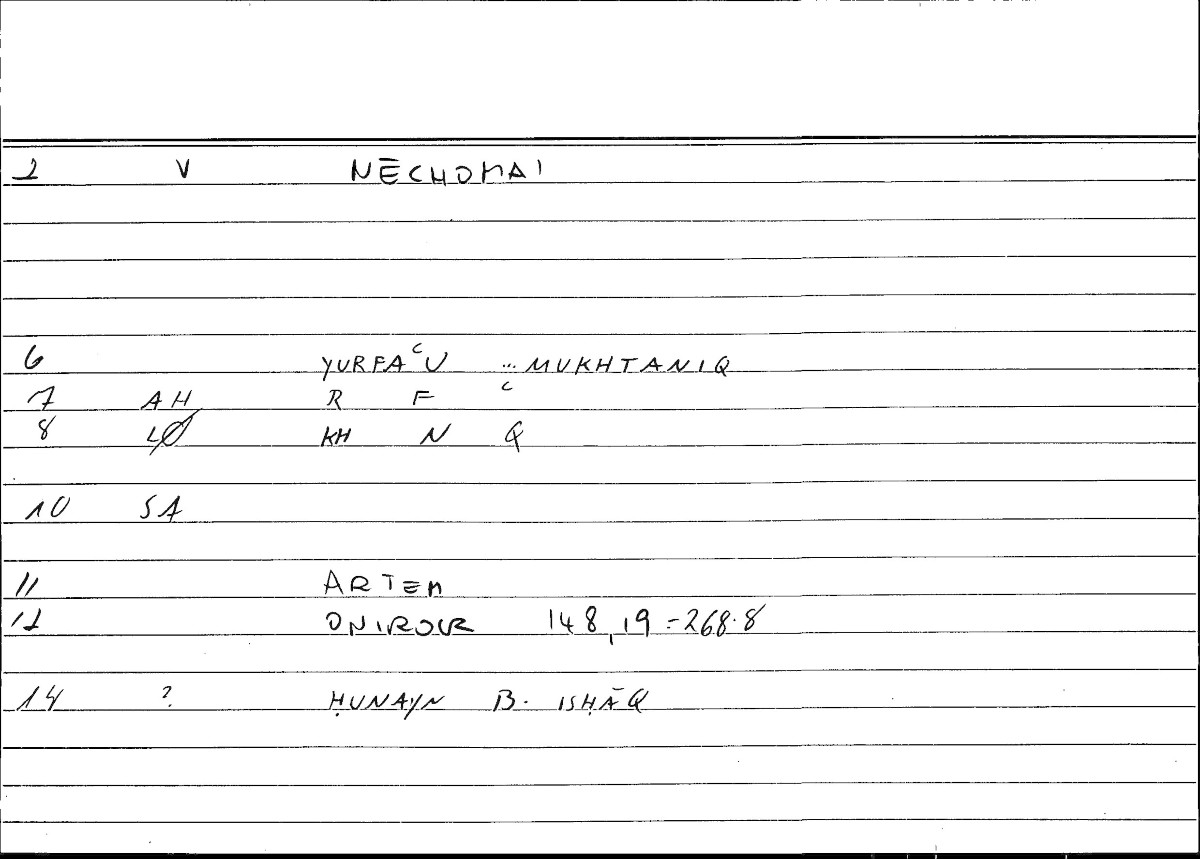 2 V NĒCHOMAI
6 YURFAʿU ... MUKHTANIQ
7 AH R F ʿ
8 LØ KH N Q
10 SA
11 ARTEM
12 ONIROCR 148,19 = 268.8
14 ? ḤUNAYN B. ISḤĀQ